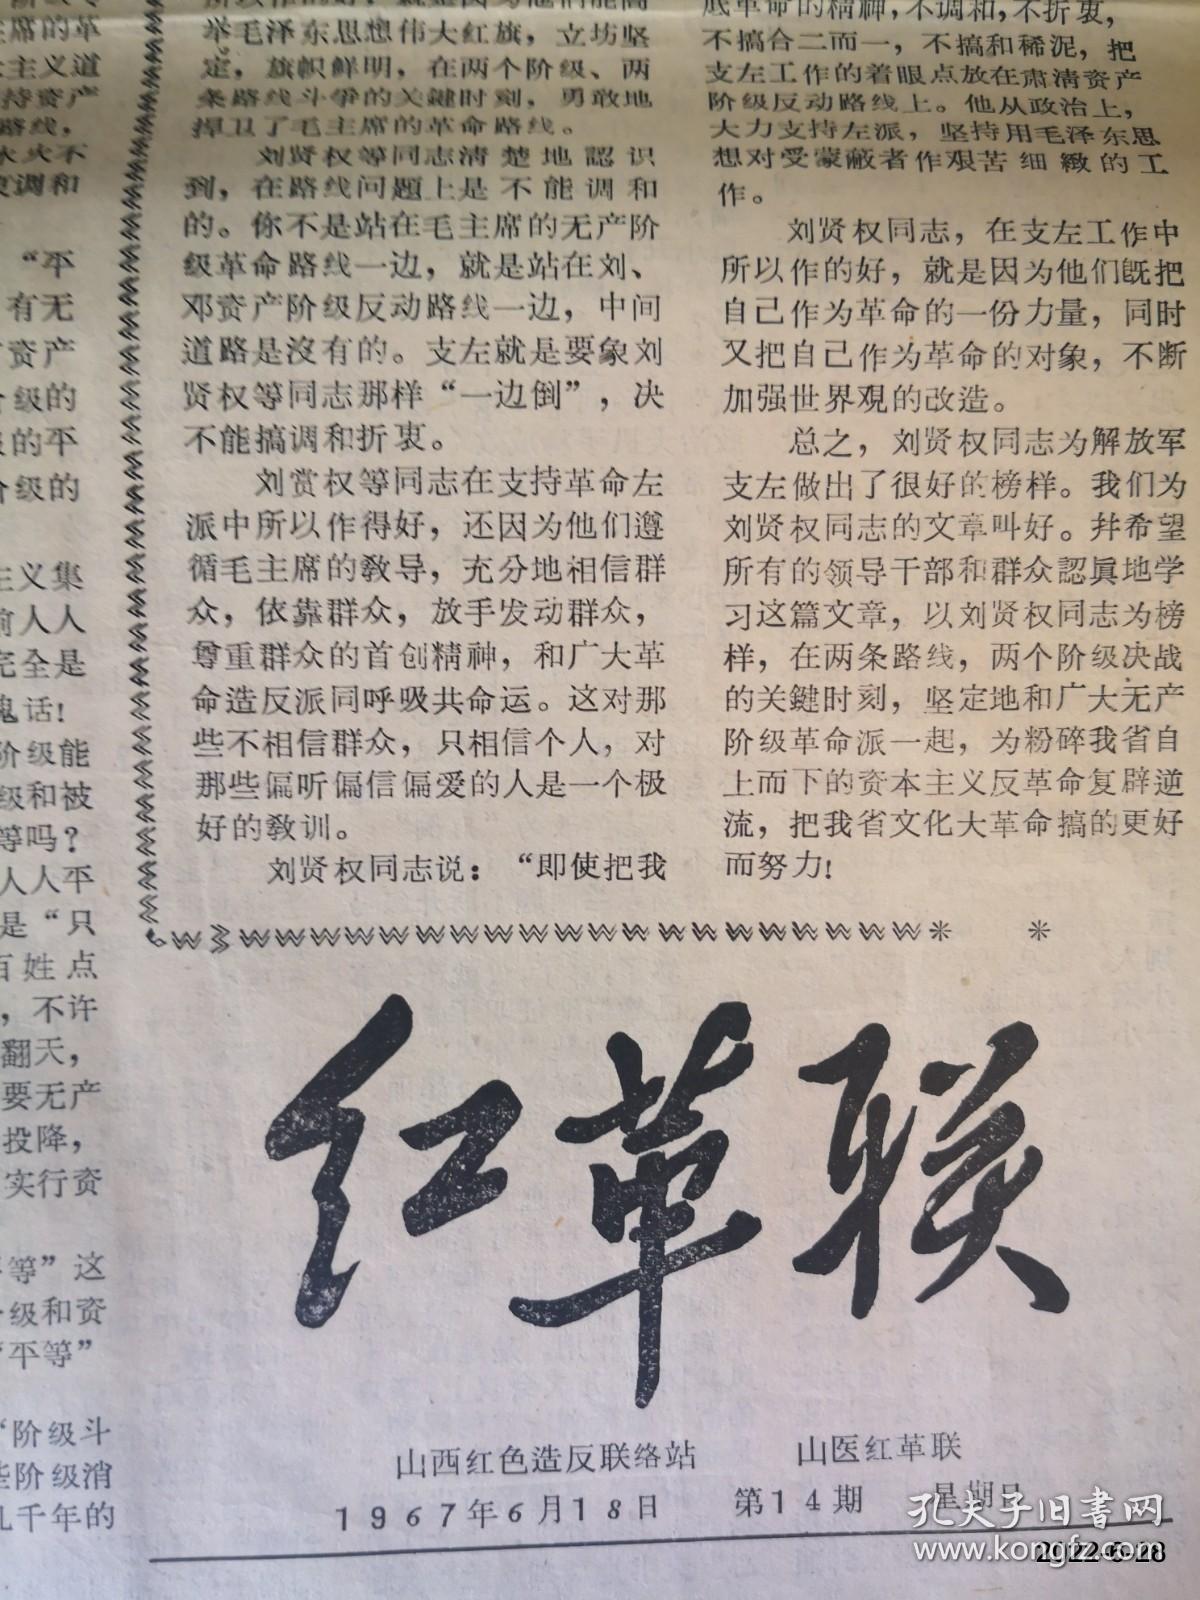 席的革
主义道
持资产
路线，
水火不
调和
“平
有无
资产
级的
的平
级的
主义集
前人人
完全是
鬼话！
阶级能
级和被
等吗？
人人平
是“只
百姓点
，不许
翻天，
要无产
投降，
实行资
等”这
级和资
“平等”
“阶级斗
些阶级消
几千年的
举毛泽东思想伟大红旗，立坊坚
定，旗帜鲜明，在两个阶级、两
条路线斗争的关鍵时刻，勇敢地
捍卫了毛主席的革命路线。
刘贤权等同志清楚地認识
到，在路线问题上是不能调和
的。你不是站在毛主席的无产阶
级革命路线一边，就是站在刘、
邓资产阶级反动路线一边，中间
道路是没有的。支左就是要象刘
贤权等同志那样“一边倒”，决
不能搞调和折衷。
刘赏权等同志在支持革命左
派中所以作得好，还因为他们遵
循毛主席的敎导，充分地相信群
众，依靠群众，放手发动群众，
尊重群众的首创精神，和广大革
命造反派同呼吸共命运。这对那
些不相信群众，只相信个人，对
那些偏听偏信偏爱的人是一个极
好的敎训。
刘贤权同志说：“即使把我
底革命的精神，不调和，不折衷，
不搞合二而一，不搞和稀泥，把
支左工作的着眼点放在肃清资产
阶级反动路线上。他从政治上，
大力支持左派，坚持用毛泽东思
想对受蒙蔽者作艰苦细緻的工
作。
刘贤权同志，在支左工作中
所以作的好，就是因为他们既把
自己作为革命的一份力量，同时
又把自己作为革命的对象，不断
加强世界观的改造。
总之，刘贤权同志为解放军
支左做出了很好的榜样。我们为
刘贤权同志的文章叫好。幷希望
所有的领导干部和群众認眞地学
习这篇文章，以刘贤权同志为榜
样，在两条路线，两个阶级决战
的关鍵时刻，坚定地和广大无产
阶级革命派一起，为粉碎我省自
上而下的资本主义反革命复辟逆
流，把我省文化大革命搞的更好
而努力！
红革联
山西红色造反联络站 山医红革联
1967年6月18日 第14期 星期日
孔夫子旧书网
www.kongfz.com
2022-6-28